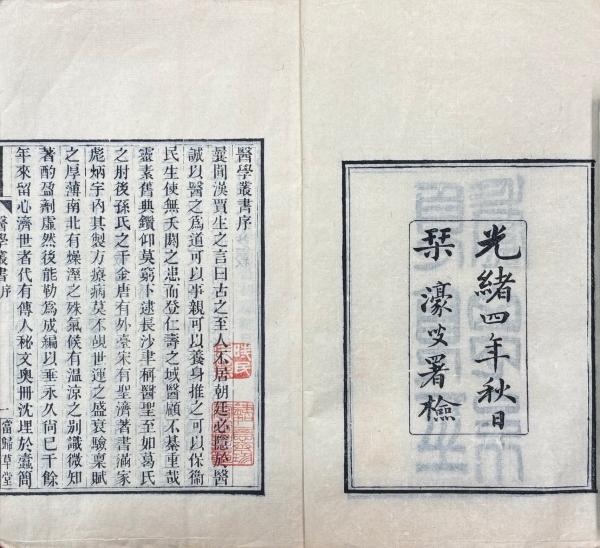 光緒四年秋日
栞 濠叟署檢
醫學叢書序
曩聞漢賈生之言曰古之至人不居朝廷必隱於醫
誠以醫之爲道可以事親可以養身推之可以保衞
民生使無夭閼之患而登仁壽之域醫顧不綦重哉
靈素舊典鑽仰莫窮下逮長沙聿稱醫聖至如葛氏
之肘後孫氏之千金唐有外臺宋有聖濟著書滿家
彪炳宇內其製方療病莫不覘世運之盛衰驗稟賦
之厚薄南北有燥溼之殊氣候有温涼之別識微知
著酌盈劑虛然後能勒爲成編以垂永久尙已千餘
年來留心濟世者代有傳人秘文奧冊沈埋於蠹簡
醫學叢書序 一 當歸草堂